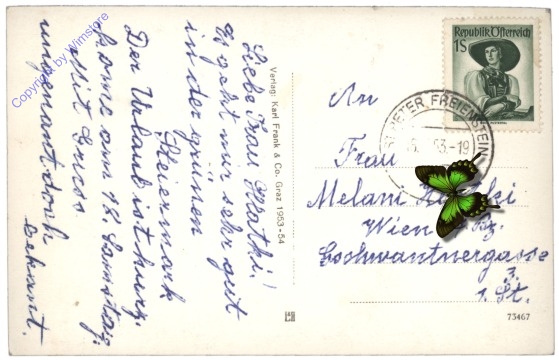 Liebe Frau Hlatki!
Es geht mir sehr gut
in der grünen
Steiermark
Der Urlaub ist kurz.
komme am 18. Samstag.
Mit Gruss
ungenannt doch
bekannt.
Verlag: Karl Frank & Co. Graz 1953-54
Republik Österreich
1S
ST. PETER FREIENSTEIN
53-19
An
Frau
Melani
Wien
Loschwantnergasse
3.
1. St.
73467
Copyright by Wimstore